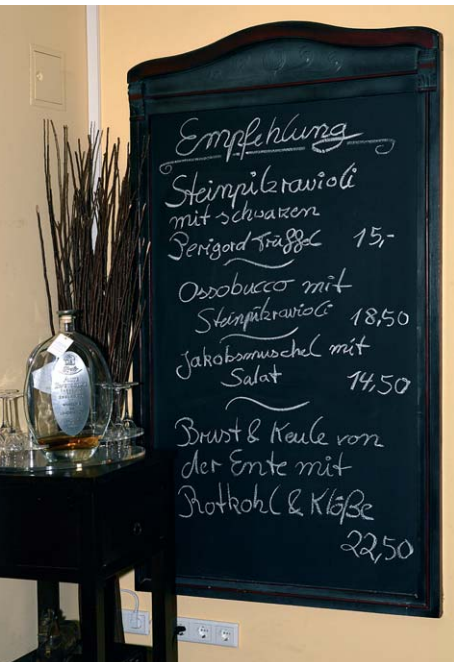 Empfehlung
Steinpilzravioli
mit schwarzen
Perigord Trüffel 15,-
Ossobucco mit
Steinpilzravioli 18,50
Jakobsmuschel mit
Salat 14,50
Brust & Keule von
der Ente mit
Rotkohl & Klöße
22,50